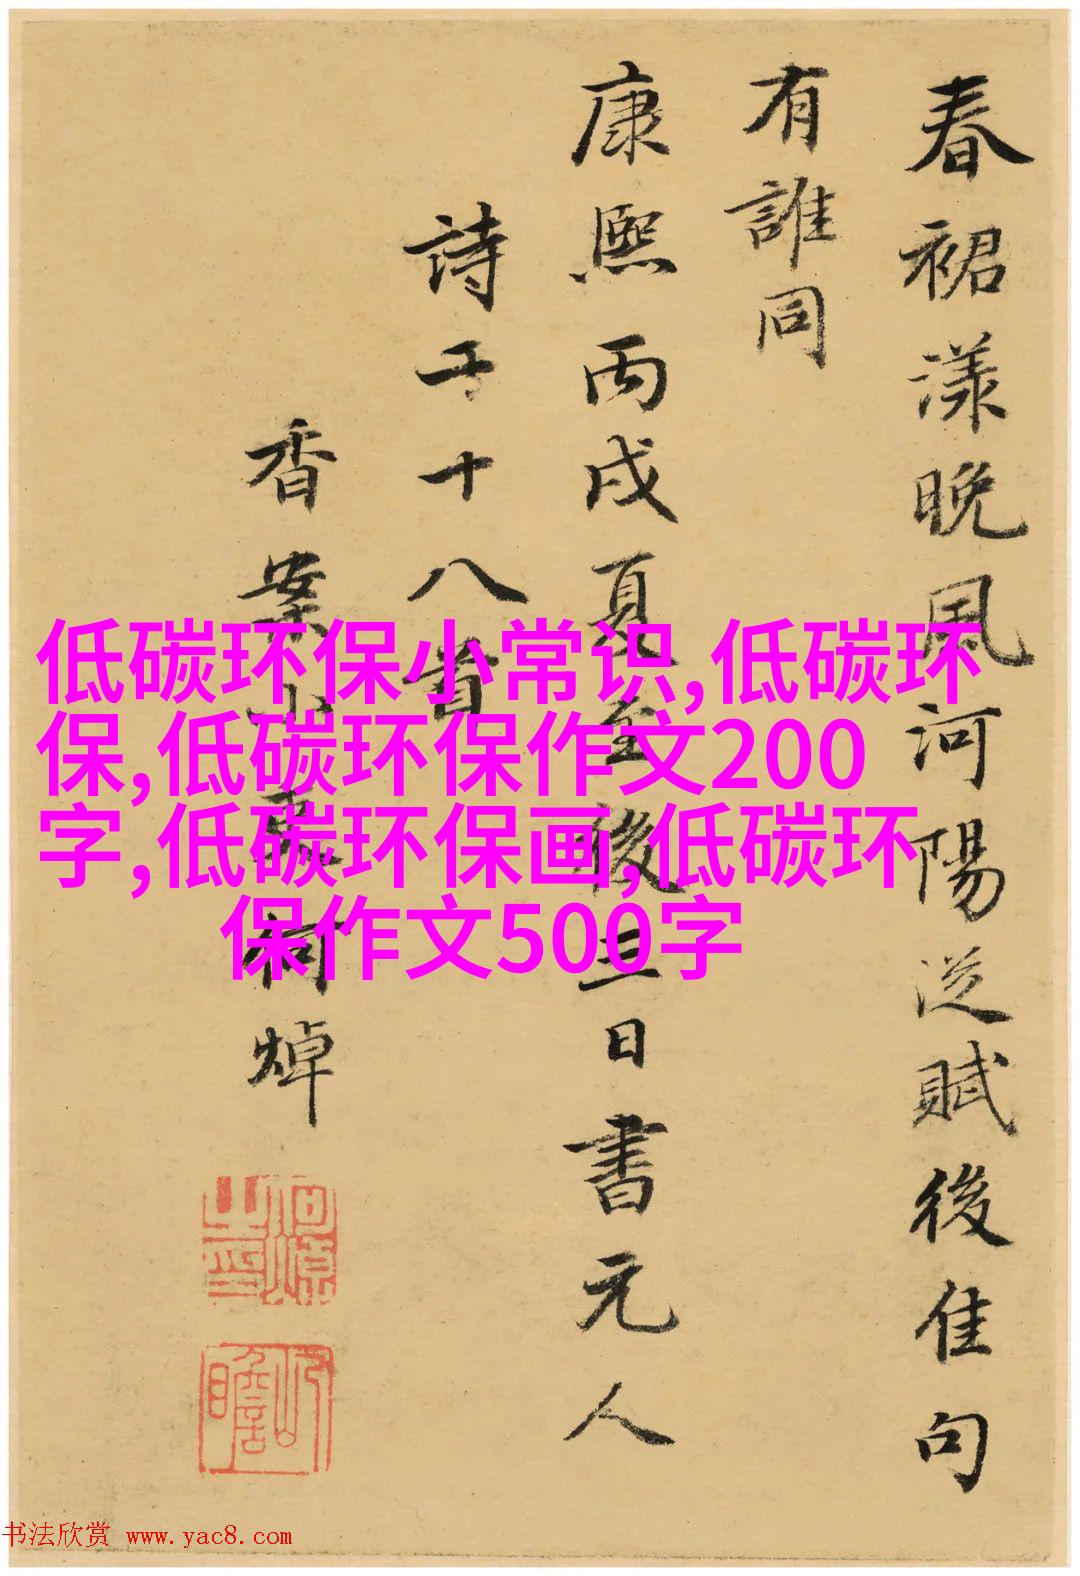 春裙漾晚風河陽從賦後佳句
有誰同
康熙丙戌夏至後三日書元人
詩一十八首
香案小吏何焯
低碳环保小常识,低碳环
保,低碳环保作文200
字,低碳环保画,低碳环
保作文500字
书法欣赏 www.yac8.com